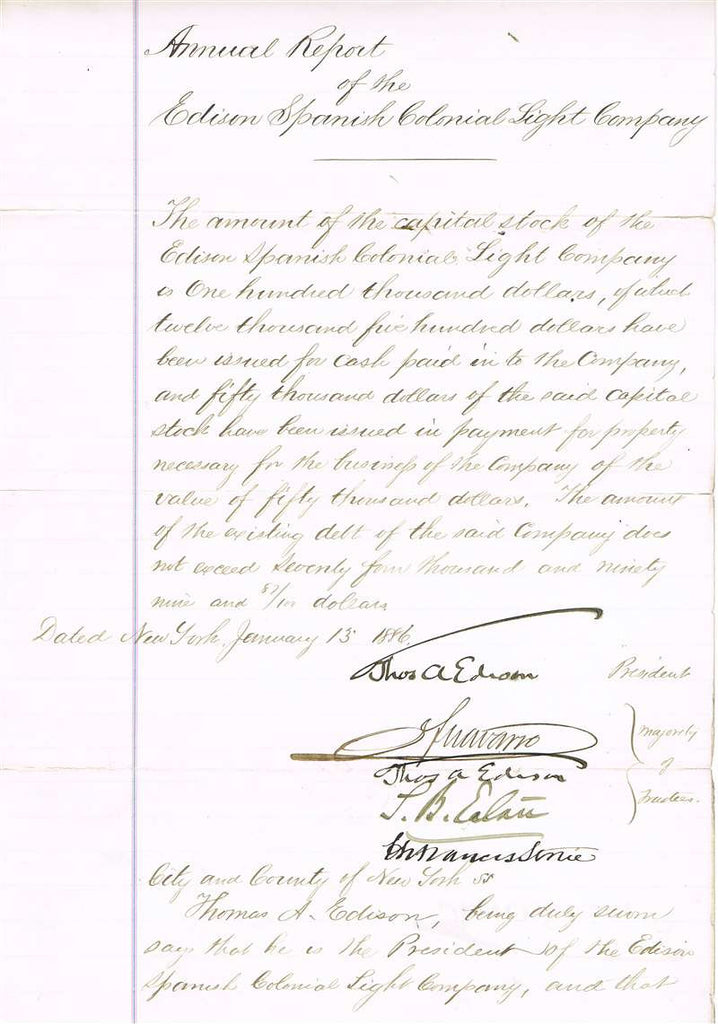 Annual Report
of the
Edison Spanish Colonial Light Company
The amount of the capital stock of the
Edison Spanish Colonial Light Company
is One hundred thousand dollars, of which
twelve thousand five hundred dollars have
been issued for cash paid in to the Company,
and fifty thousand dollars of the said capital
stock have been issued in payment for property
necessary for the business of the Company of the
value of fifty thousand dollars. The amount
of the existing debt of the said Company does
not exceed Seventy four thousand and ninety
nine and /100 dollars
Dated New York, January 15 1886.
Thos A Edison President
J F Navarro majority
Thos A Edison of
S. B. Eaton Trustees.
Francis
City and County of New York ss
Thomas A. Edison, being duly sworn
says that he is the President of the Edison
Spanish Colonial Light Company, and that